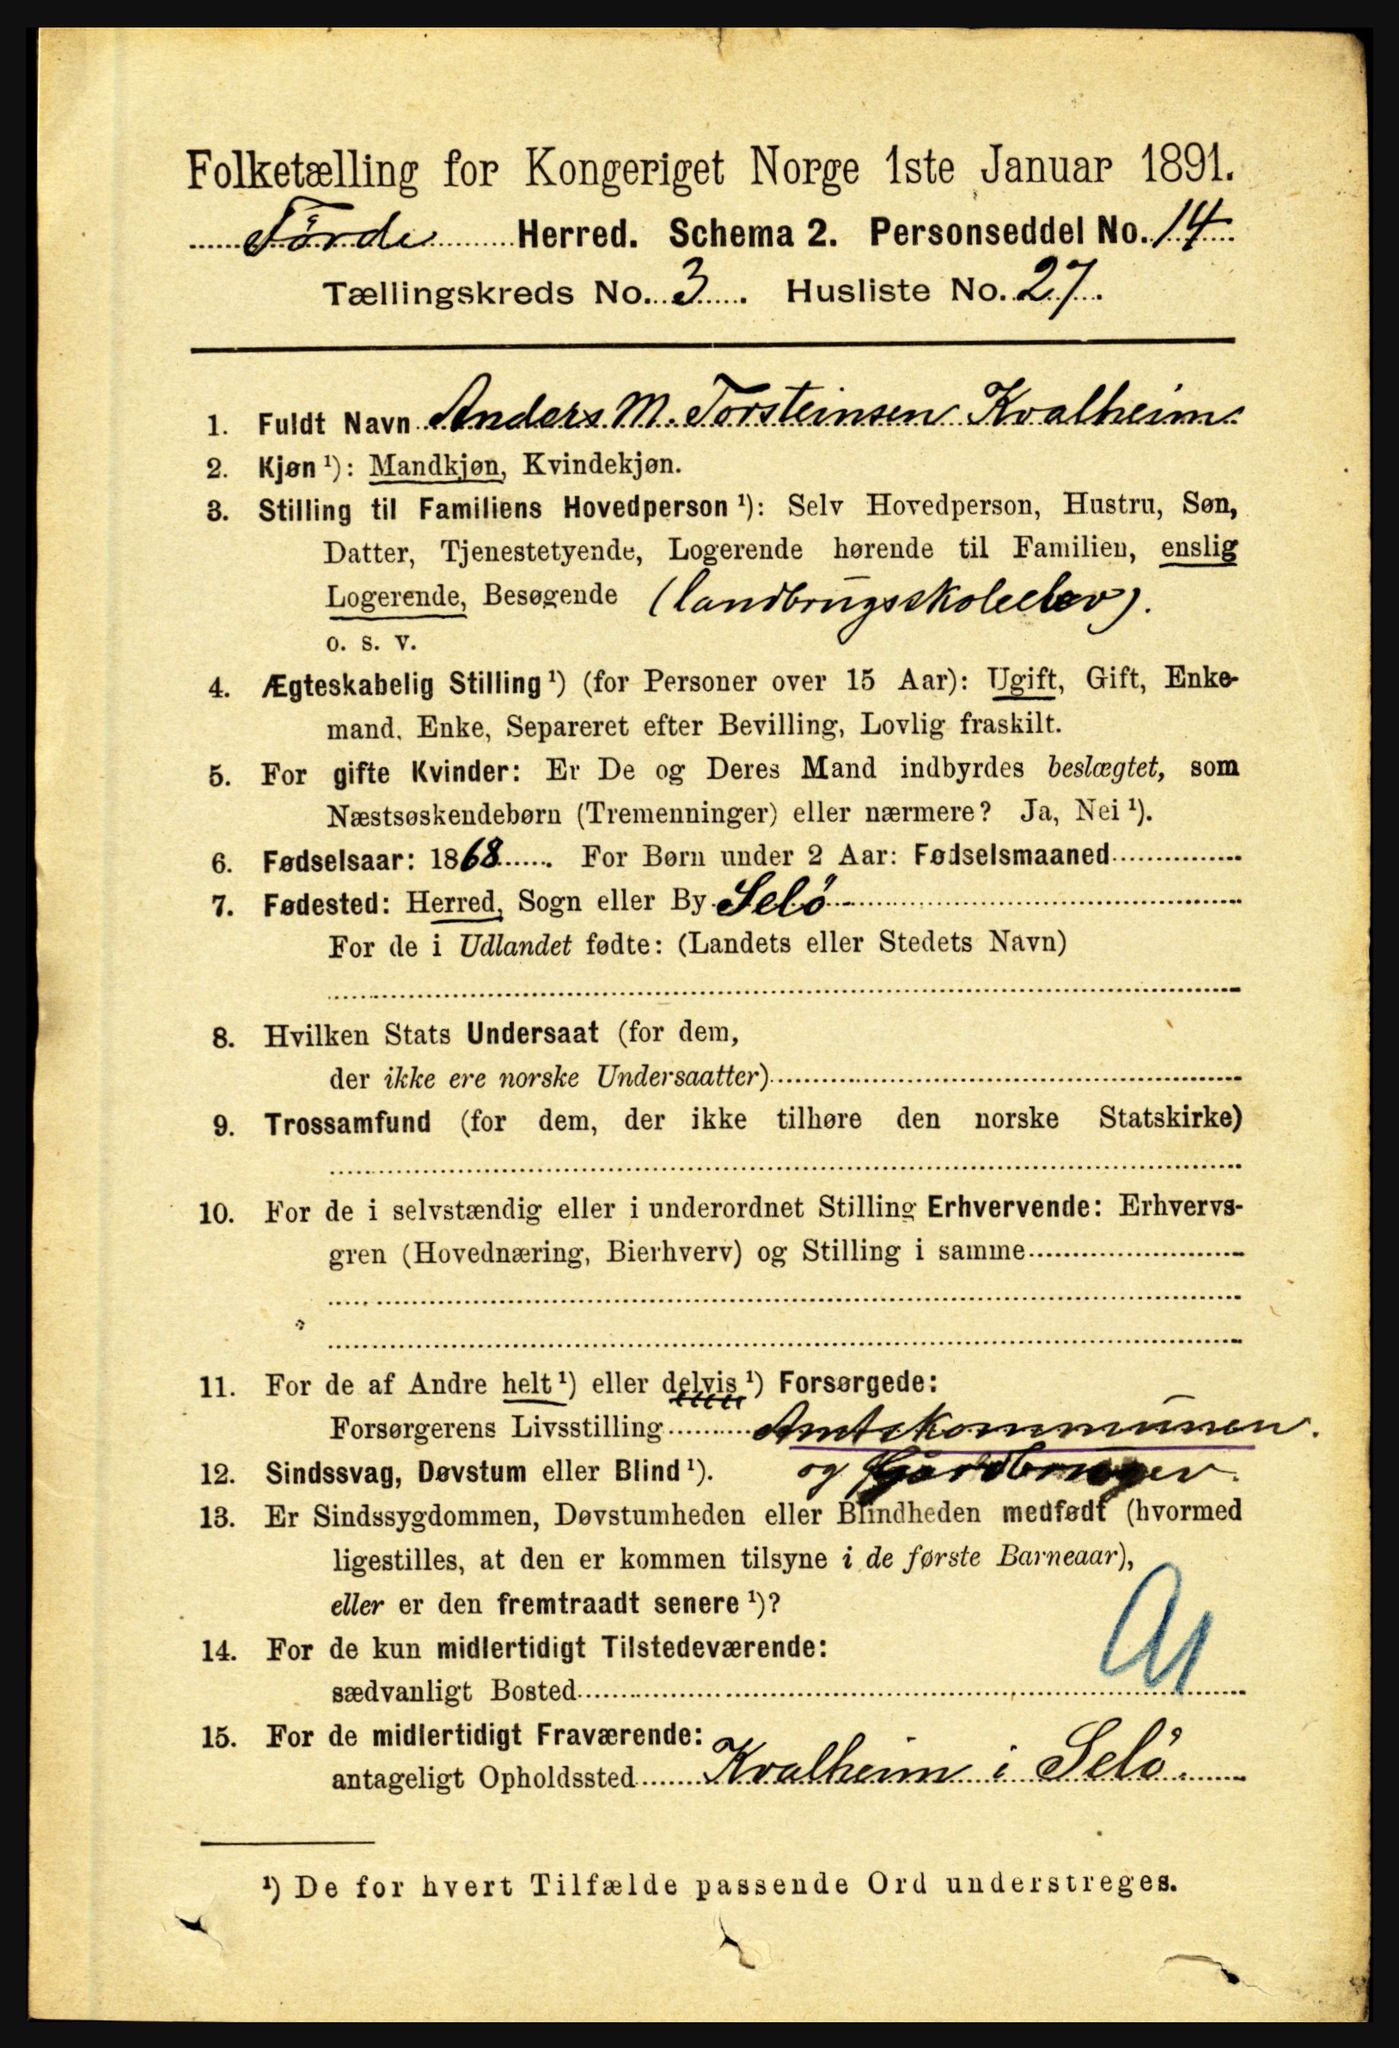 Folketælling for Kongeriget Norge 1ste Januar 1891.
Førde Herred. Schema 2. Personseddel No. 14
Tællingskreds No. 3. Husliste No. 27.
1. Fuldt Navn Anders M. Torsteinsen Kvalheim
2. Kjøn ¹): Mandkjøn, Kvindekjøn.
3. Stilling til Familiens Hovedperson ¹): Selv Hovedperson, Hustru, Søn,
Datter, Tjenestetyende, Logerende hørende til Familien, enslig
Logerende, Besøgende (landbrugsskoleelev).
o. s. v.
4. Ægteskabelig Stilling ¹) (for Personer over 15 Aar): Ugift, Gift, Enke-
mand, Enke, Separeret efter Bevilling, Lovlig fraskilt.
5. For gifte Kvinder: Er De og Deres Mand indbyrdes beslægtet, som
Næstsøskendebørn (Tremenninger) eller nærmere? Ja, Nei ¹).
6. Fødselsaar: 1868. For Børn under 2 Aar: Fødselsmaaned
7. Fødested: Herred, Sogn eller By Selö
For de i Udlandet fødte: (Landets eller Stedets Navn)
8. Hvilken Stats Undersaat (for dem,
der ikke ere norske Undersaatter)
9. Trossamfund (for dem, der ikke tilhøre den norske Statskirke)
10. For de i selvstændig eller i underordnet Stilling Erhvervende: Erhvervs-
gren (Hovednæring, Bierhverv) og Stilling i samme
11. For de af Andre helt ¹) eller delvis ¹) Forsørgede:
Forsørgerens Livsstilling Amtskommunen.
12. Sindssvag, Døvstum eller Blind ¹). og Gårdbruger.
13. Er Sindssygdommen, Døvstumheden eller Blindheden medfødt (hvormed
ligestilles, at den er kommen tilsyne i de første Barneaar),
eller er den fremtraadt senere ¹)?
14. For de kun midlertidigt Tilstedeværende:
sædvanligt Bosted
15. For de midlertidigt Fraværende:
antageligt Opholdssted Kvalheim i Selö.
¹) De for hvert Tilfælde passende Ord understreges.